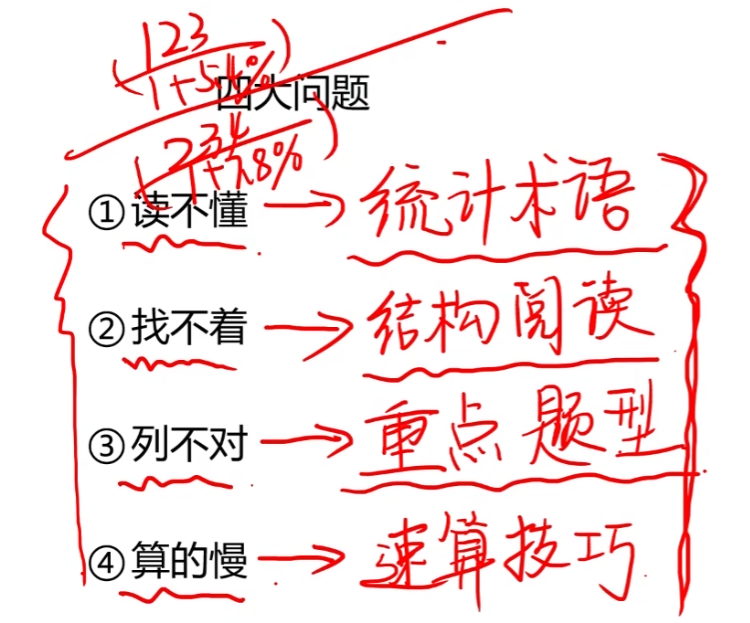 123
1+5.4%
四大问题
234
1+7.8%
①读不懂 → 统计术语
②找不着 → 结构阅读
③列不对 → 重点题型
④算的慢 → 速算技巧